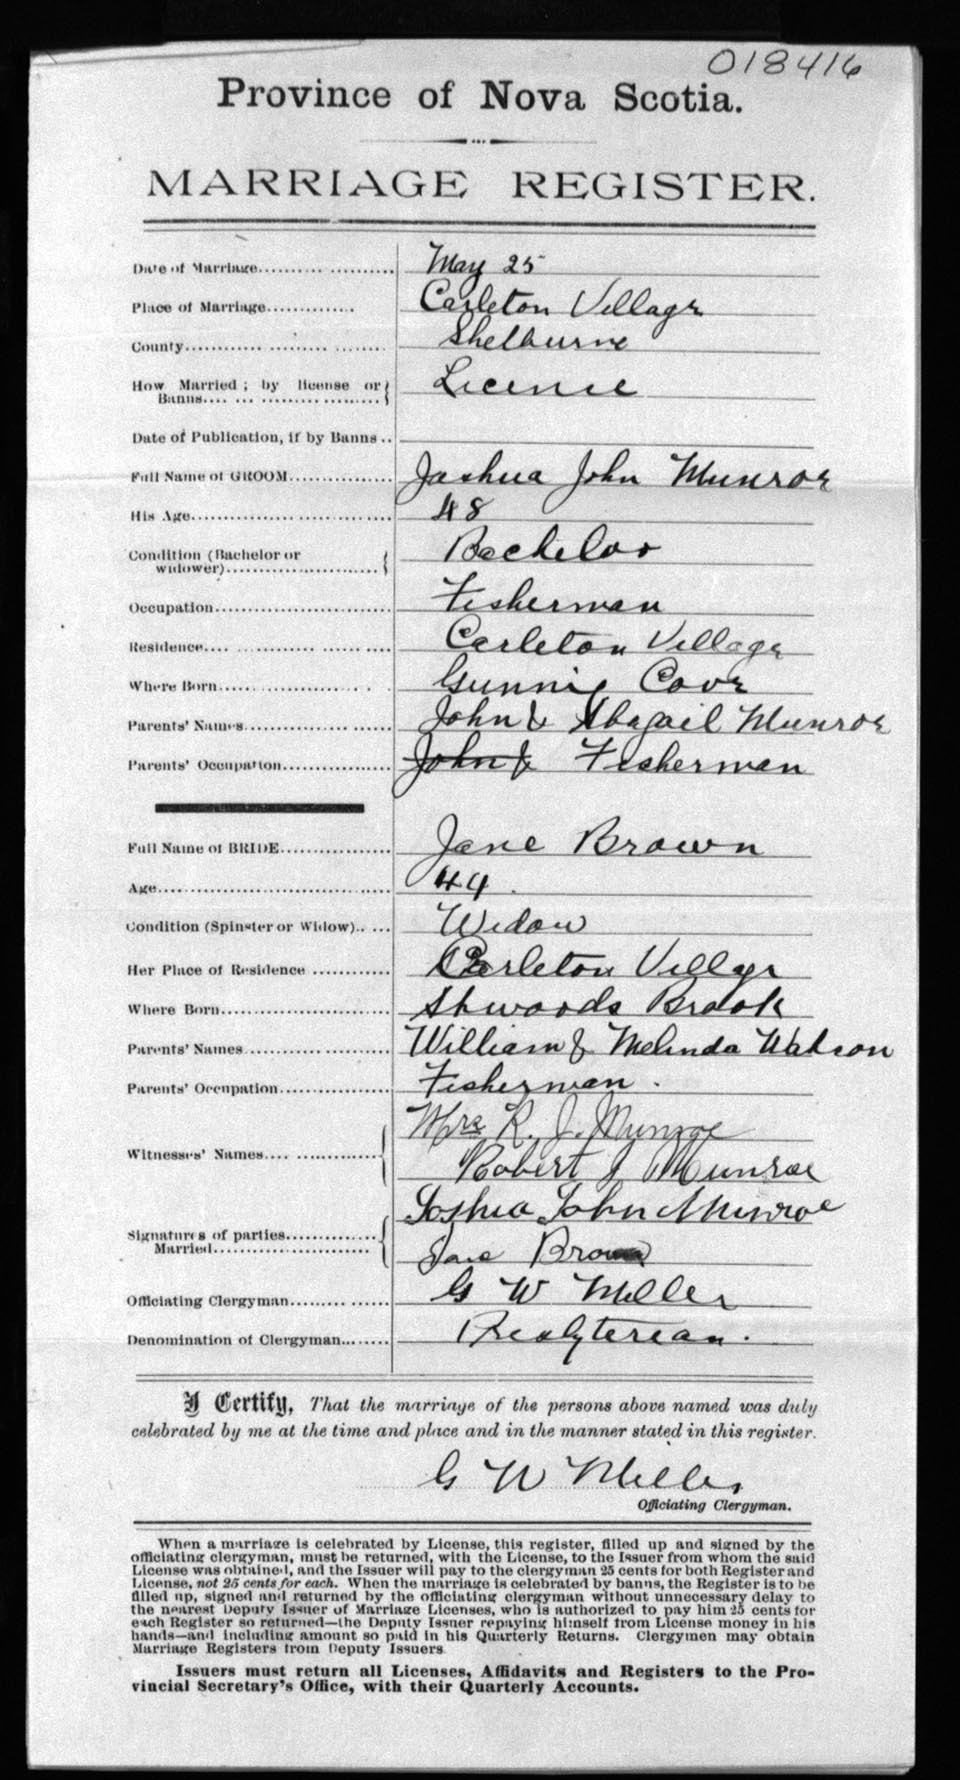 018416
Province of Nova Scotia.
MARRIAGE REGISTER.
Date of Marriage........... ........... May 25
Place of Marriage............. Carleton Village
County........... ......... ......... Shelburne
How Married ; by license or License
Banns.... ... ......... .........
Date of Publication, if by Banns ..
Full Name of GROOM................ Joshua John Munroe
His Age................................ 48
Condition (Bachelor or Bachelor
widower)........................
Occupation............................. Fisherman
Residence.... ............. ...... .... Carleton Village
Where Born..................... . . Gunning Cove
Parents' Names........................ John & Abagail Munroe
Parents' Occupation................. John & Fisherman
Full Name of BRIDE................. Jane Brown
Age..................................... 44 .
Condition (Spinster or Widow).. ... Widow
Her Place of Residence ............ Carleton Villge
Where Born........................... Atwoods Brook
Parents' Names....................... William & Melinda Watson
Parents' Occupation.................. Fisherman .
Mrs R. J. Munroe
Witnesses' Names.... ..............
Robert J Munroe
Joshua John Munroe
Signatures of parties...............
Married......................... Jane Brown
Officiating Clergyman......... ...... G W Miller
Denomination of Clergyman........ Presbyterean.
I Certify, That the marriage of the persons above named was duly
celebrated by me at the time and place and in the manner stated in this register.
G W Miller
Officiating Clergyman.
When a marriage is celebrated by License, this register, filled up and signed by the
officiating clergyman, must be returned, with the License, to the Issuer from whom the said
License was obtained, and the Issuer will pay to the clergyman 25 cents for both Register and
License, not 25 cents for each. When the marriage is celebrated by banns, the Register is to be
filled up, signed and returned by the officiating clergyman without unnecessary delay to
the nearest Deputy Issuer of Marriage Licenses, who is authorized to pay him 25 cents for
each Register so returned—the Deputy Issuer repaying himself from License money in his
hands—and including amount so paid in his Quarterly Returns. Clergymen may obtain
Marriage Registers from Deputy Issuers
Issuers must return all Licenses, Affidavits and Registers to the Pro-
vincial Secretary's Office, with their Quarterly Accounts.